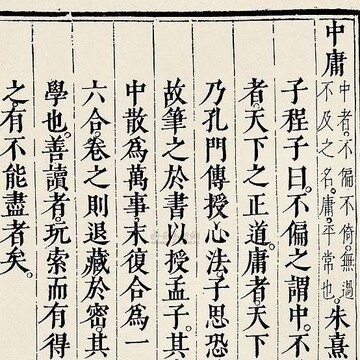 中庸
中者。不偏不倚。無過
不及之名。庸。平常也。
朱熹
子程子曰。不偏之謂中。不
者。天下之正道。庸者。天下
乃孔門傳授心法。子思恐
故筆之於書。以授孟子。其
中散為萬事。末復合為一
六合。卷之則退藏於密。其
學也。善讀者。玩索而有得
之。有不能盡者矣。